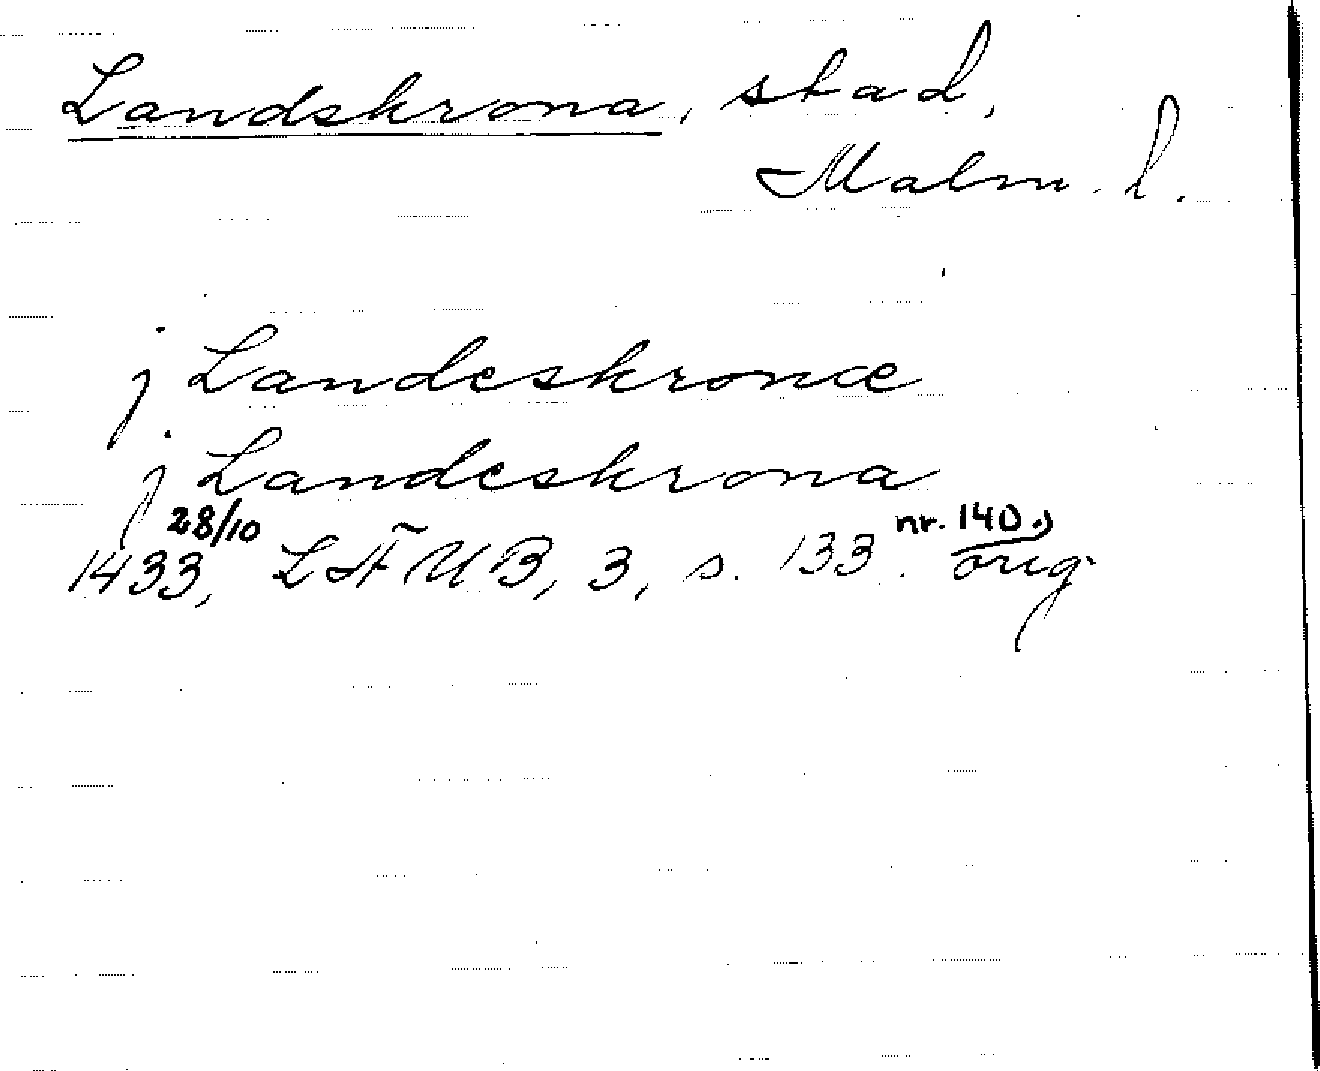 Landskrona, stad,
Malm. l.
j Landeskronæ
j Landeskrona
28/10 nr. 140.)
1433, LÄUB, 3, s. 133. orig